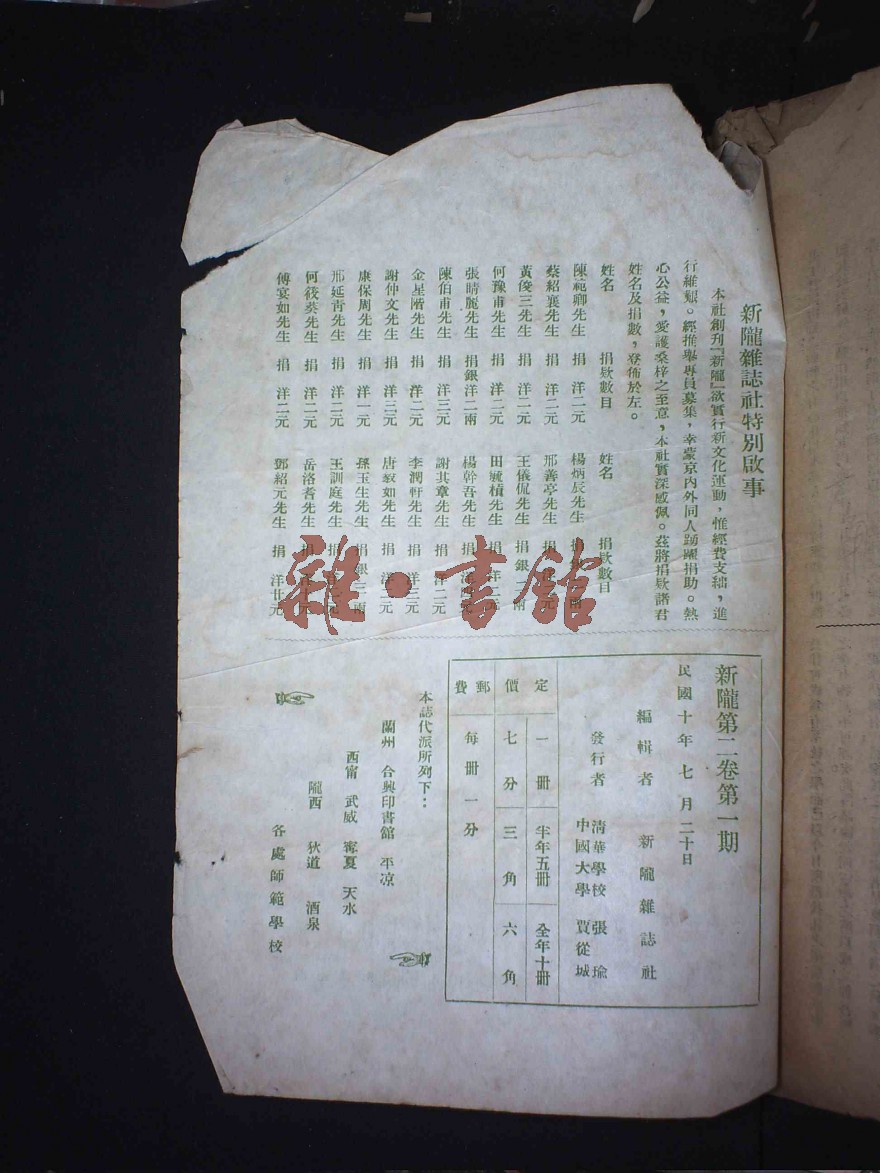 新隴雜誌社特別啟事
本社創刊『新隴』欲實行新文化運動，惟經費支絀，進
行維艱。經推舉專員募集，幸蒙京內外同人踴躍捐助。熱
心公益，愛護桑梓之至意，本社實深感佩。茲將捐欵諸君
姓名及捐數，登佈於左。
姓名 捐欵數目 姓名 捐欵數目
陳範卿先生 捐 洋二元 楊炳辰先生
蔡紹襄先生 捐 洋二元 邢善亭先生
黃俊三先生 捐 洋二元 王儀侃先生 捐銀 兩
何豫甫先生 捐 洋二元 田毓楨先生 捐 洋二元
張晴麗先生 捐銀二兩 楊幹吾先生 捐
陳伯甫先生 捐 洋二元 謝其章先生 捐 洋二元
金星階先生 捐 洋三元 李潤軒先生 捐 洋三元
謝仲文先生 捐 洋三元 唐寂如先生 捐 洋二元
康保周先生 捐 洋一元 孫玉生先生 捐銀三兩
邢延青先生 捐 洋二元 王訓庭先生 捐
何筱葵先生 捐 洋二元 岳洛耆先生 捐
傅宴如先生 捐 洋二元 鄧紹元先生 捐 洋廿元
新隴第二卷第一期
民國十年七月二十日
編輯者 新隴雜誌社
發行者 清華學校 張瑜
中國大學 賈從城
定 一冊 半年五冊 全年十冊
價 七分 三角 六角
郵費 每冊一分
本誌代派所列下：
蘭州 合興印書館 平涼
西甯 武威 寧夏 天水
隴西 狄道 酒泉
各處師範學校
雜·書館